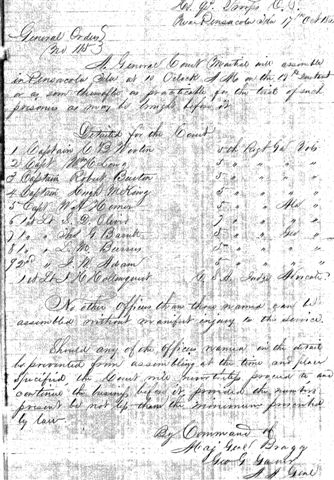 Hd. Qr. Troops C. S.
Near Pensacola Fla 17th Oct
General Orders
No 115
A General Court Martial will assemble
in Pensacola Fla at 10 O'clock A.M. on the 18th Instant
or as soon thereafter as practicable for the trial of such
prisoners as may be brought before it.
Detailed for the Court
1 Captain C. B. Wooten 5th Regt Ga Vols
2 Capt W H Long 5 " " "
3 Captain Robert Burton 5 " " "
4 Captain Hugh 5 " " "
5 Capt W. A. 5 " "
6 1st Lt S. D. Oliver 7 " " "
7 1 " G 5 " Geo "
8 1 " L. M. 5 " " "
9 2nd " W. Adam 5 " " "
1st Lt J. H. Hollinquist C. S. A. Judge Advocate
No other Officers than those named can be
assembled without manifest injury to the service
Should any of the Officers named in the detail
be prevented from assembling at the time and place
specified, the Court will nevertheless proceed to and
continue the business before it, provided the number
present be not less than the minimum prescribed
by law
By Command of
Maj Genl Bragg
Geo G Garner
A A Genl